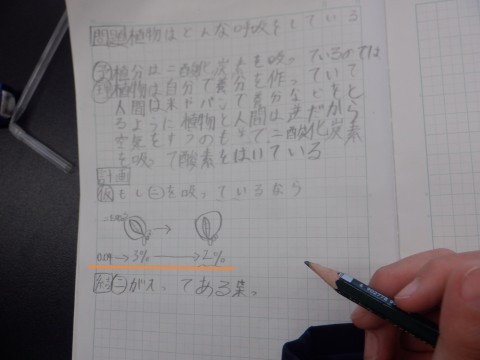 問題植物はどんな呼吸をしている
予植分は二酸化炭素を吸っているのでは
植物は自分で養分を作っていて
人間は米やパンで養分などをと
るように植物と人間は逆だから
空気をすうのも で二酸化炭素
を吸って酸素をはいている
計画
仮もし㊁を吸っているなら
→
0.04→3%→2%
結㊁がえってある集っ